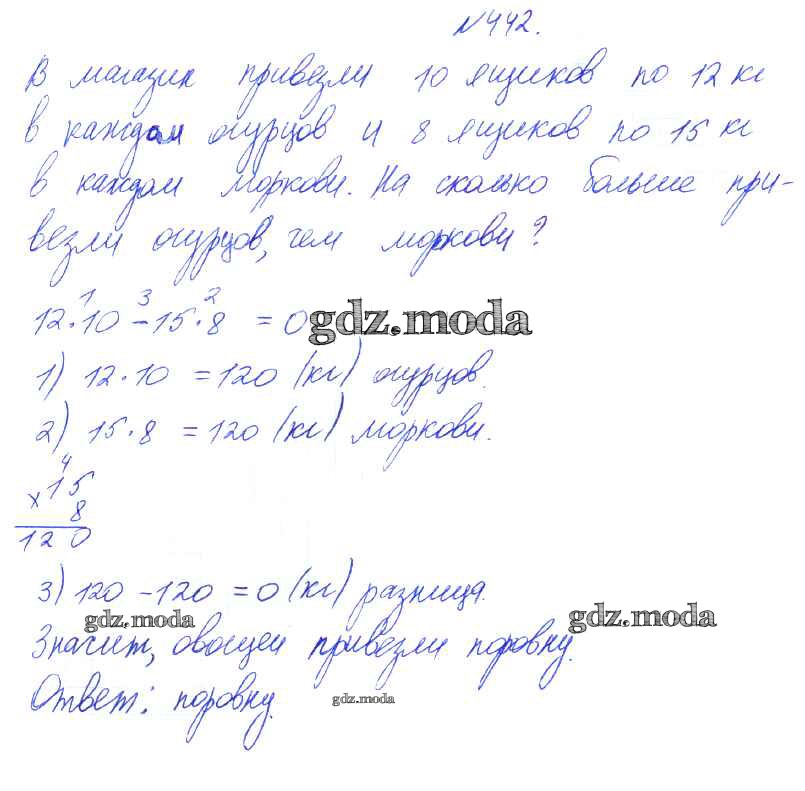 №442.
В магазин привезли 10 ящиков по 12 кг
в каждом огурцов и 8 ящиков по 15 кг
в каждом моркови. На сколько больше при-
везли огурцов, чем моркови?
1 3 2
12·10 -15·8 = 0
gdz.moda
1) 12·10 =120 (кг) огурцов.
2) 15·8 =120 (кг) моркови.
4
x15
8
120
3) 120 -120 =0 (кг) разница.
gdz.moda
gdz.moda
Значит, овощей привезли поровну.
Ответ: поровну.
gdz.moda